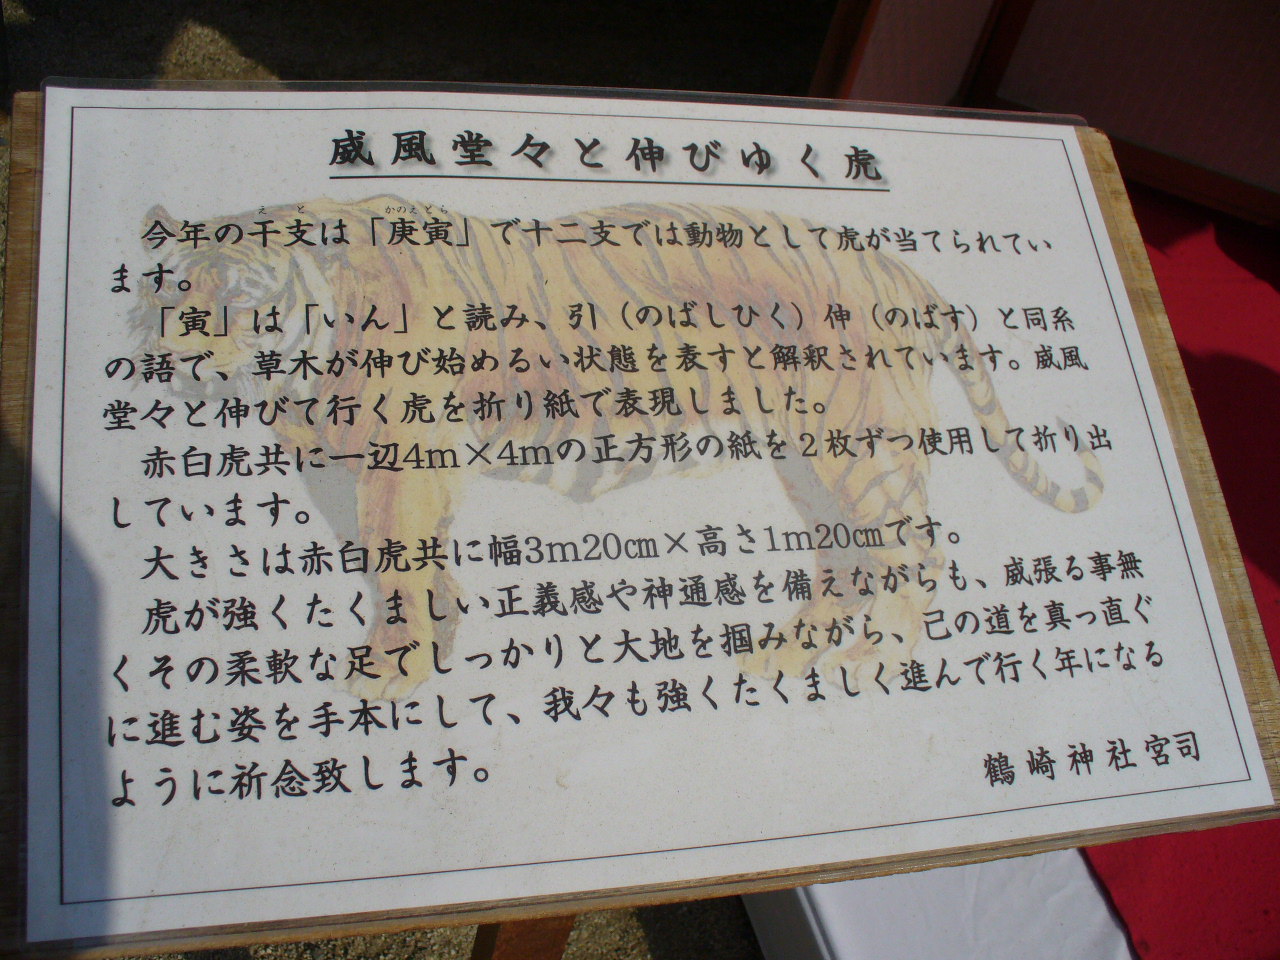 威風堂々と伸びゆく虎
えと かのえとら
今年の干支は「庚寅」で十二支では動物として虎が当てられてい
ます。
「寅」は「いん」と読み、引（のばしひく）伸（のばす）と同系
の語で、草木が伸び始めるい状態を表すと解釈されています。威風
堂々と伸びて行く虎を折り紙で表現しました。
赤白虎共に一辺4m×4mの正方形の紙を２枚ずつ使用して折り出
しています。
大きさは赤白虎共に幅3m20㎝×高さ1m20㎝です。
虎が強くたくましい正義感や神通感を備えながらも、威張る事無
くその柔軟な足でしっかりと大地を掴みながら、己の道を真っ直ぐ
に進む姿を手本にして、我々も強くたくましく進んで行く年になる
ように祈念致します。
鶴崎神社宮司